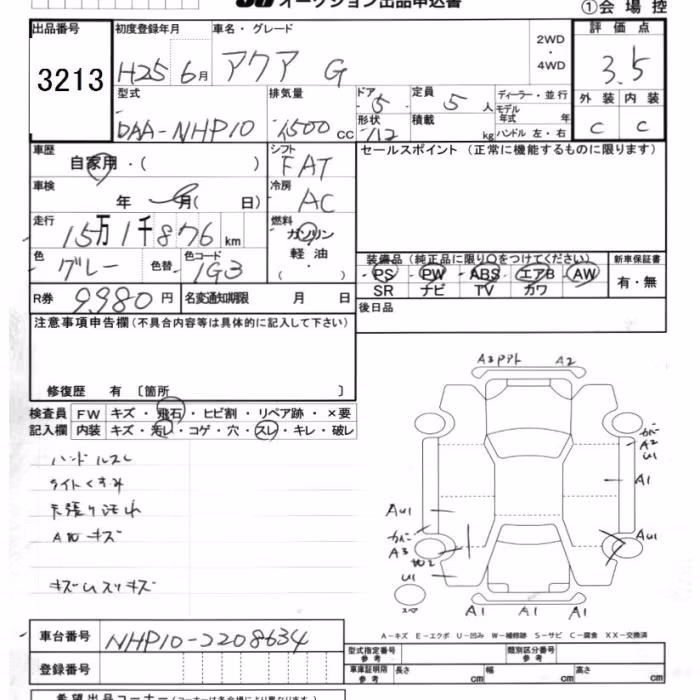 オークション出品申込書
①会場控
出品番号
3213
初度登録年月
H25 6月
車名・グレード
アクア G
2WD
・
4WD
評価点
3.5
型式
DAA-NHP10
排気量
1500 cc
ドア
5
形状
112
定員
5 人
積載
kg
ディーラー・並行
モデル年式 年
ハンドル 左・右
外装
C
内装
C
車歴
自家用・( )
シフト
FAT
セールスポイント (正常に機能するものに限ります)
車検
年 月( 日)
冷房
AC
走行
15万1千876 km
燃料
ガソリン
軽油
・( )
色
グレー
色替
色コード
1G3
装備品(純正品に限り○をつけてください)
PS・PW・ABS・エアB・AW
SR ナビ TV カワ
新車保証書
有・無
R券
9980円
名変通知期限 月 日
後日品
注意事項申告欄(不具合内容等は具体的に記入して下さい)
修復歴 有 〔箇所 〕
検査員記入欄
FW キズ・飛石・ヒビ割・リペア跡・×要
内装 キズ・汚レ・コゲ・穴・スレ・キレ・破レ
ハンドルスレ
ライトくすみ
天張り汚れ
AWキズ
キズUスリキズ
A3 PPアト A2
カバー
A2
U1
A1
AU1
AU1
カバー
A3
U1
A1 A1 A1
スペア
A-キズ E-エクボ U-凹み W-補修跡 S-サビ C-腐食 XX-交換済
車台番号
NHP10-2208634
登録番号
型式指定番号 参考
類別区分番号 参考
車庫証明用 参考
長さ cm
幅 cm
高さ cm
希望出品コーナー